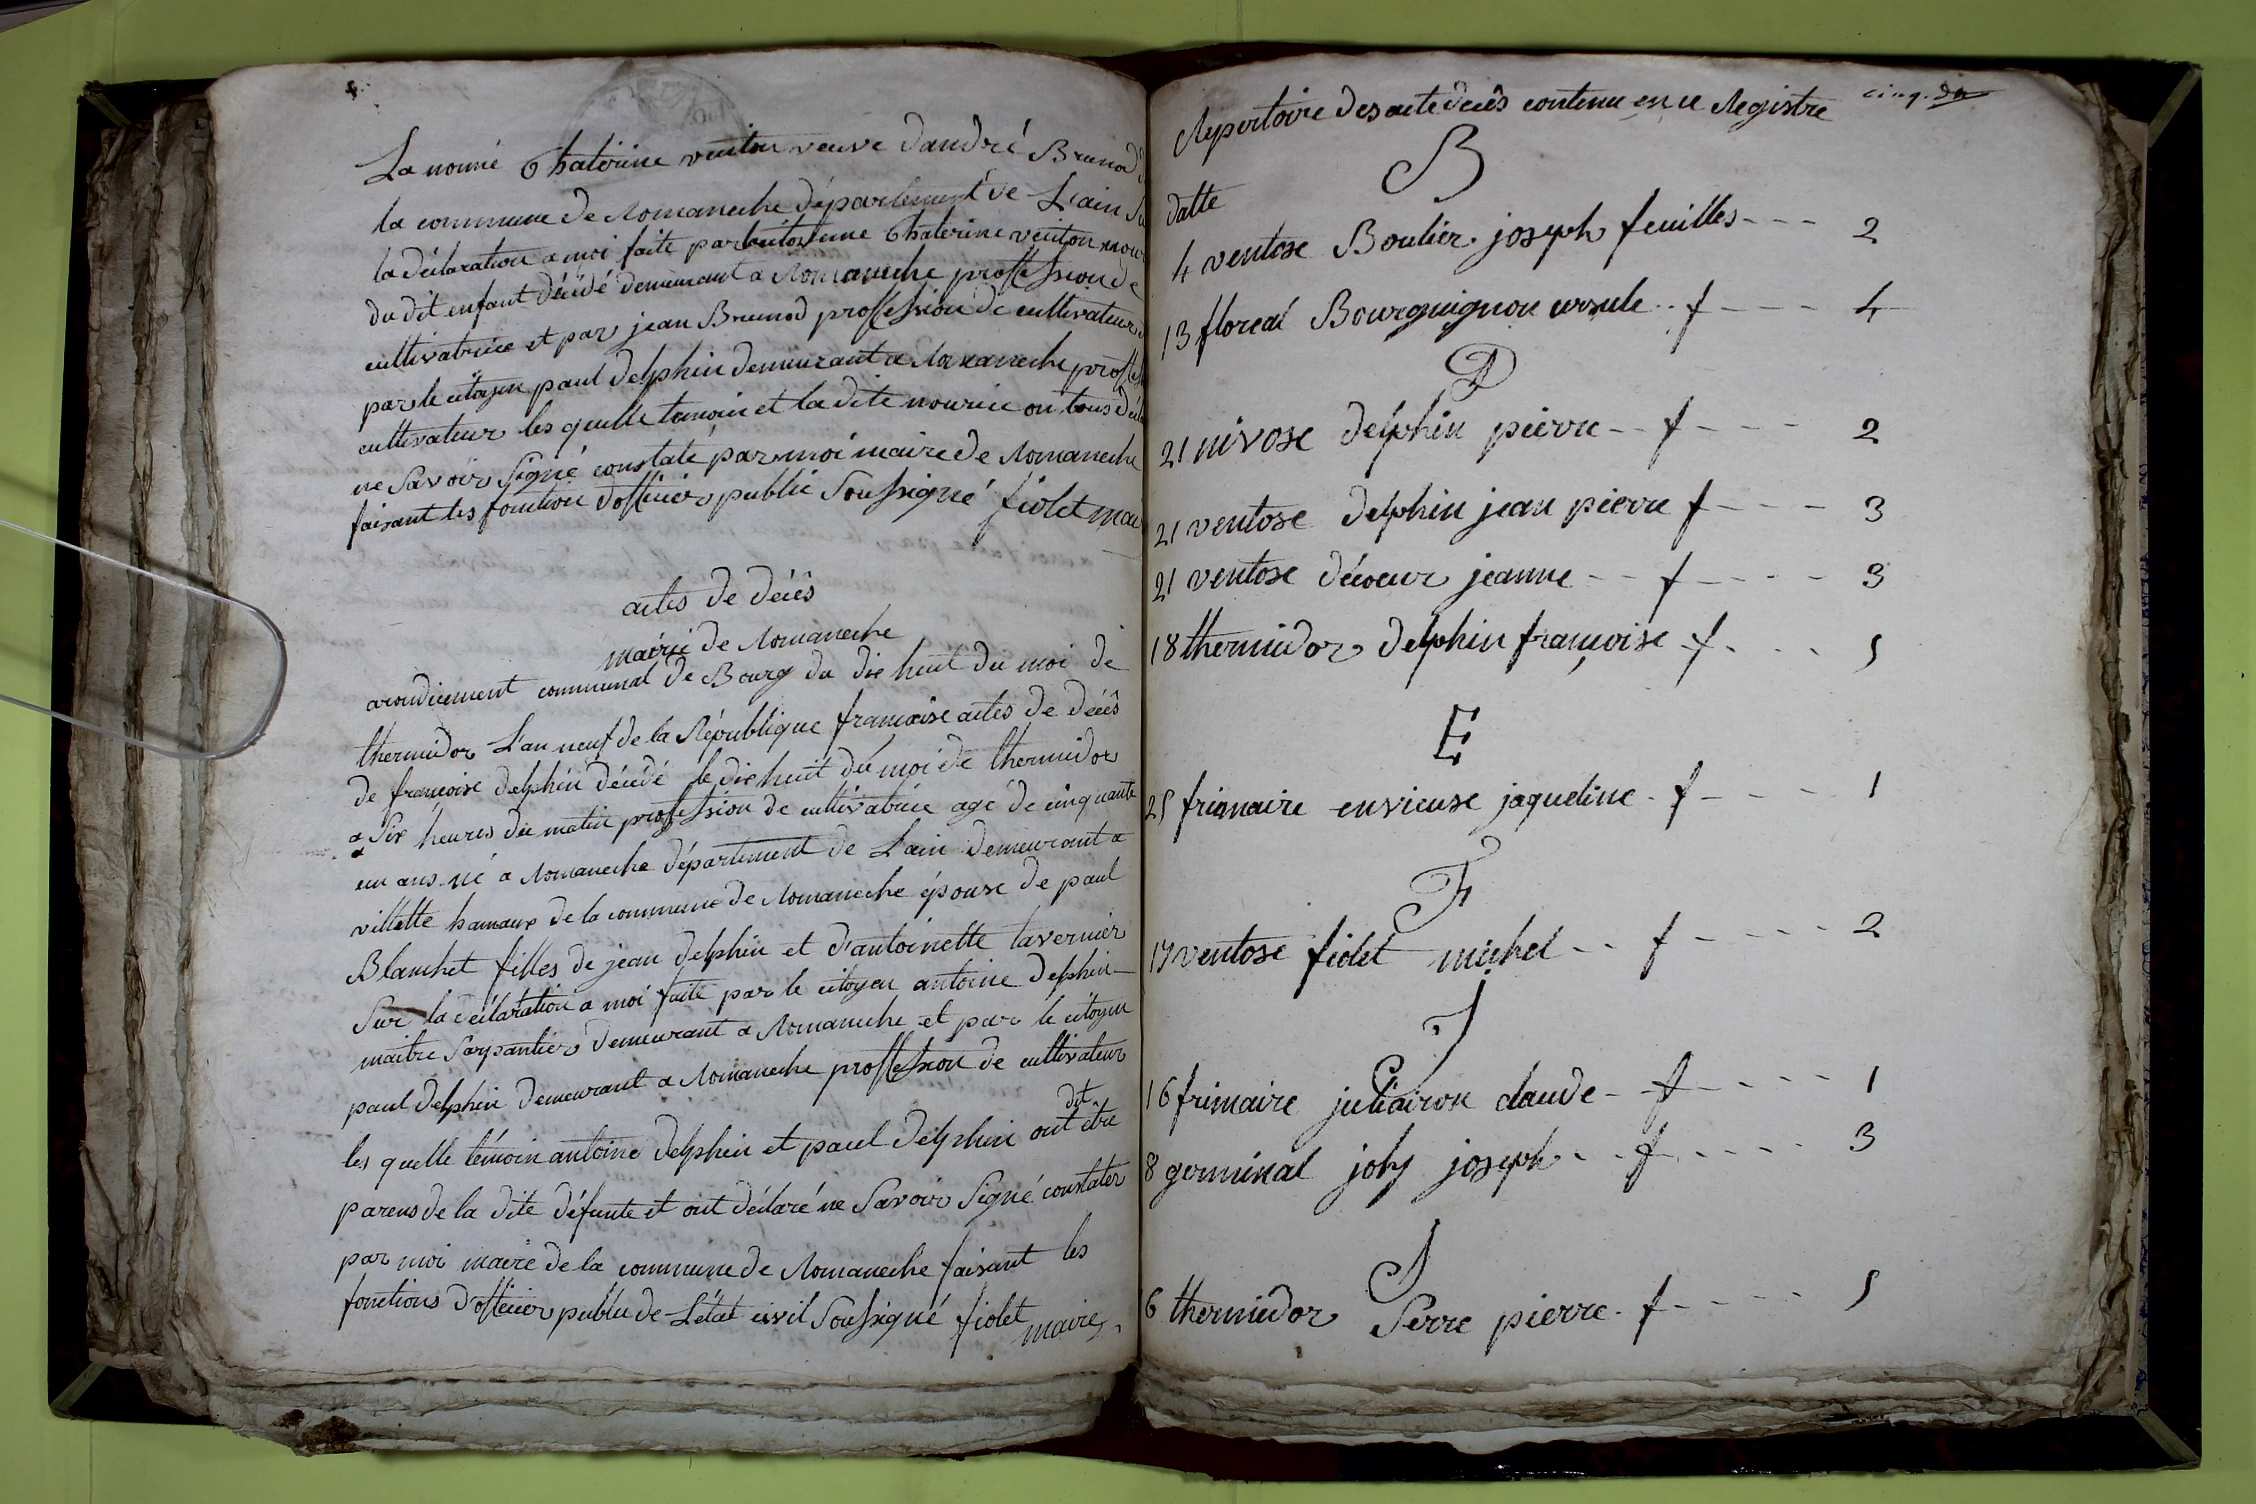 La nomé Chaterine veuton veuve dandré Brunod
la commune de Romaneche département de Lain
la déclaration a moi faite par Chaterine veuton
du dit enfant décédé demeurant a Romaneche proffession de
cultivatrice et par jean Brunod proffession de cultivateur
par le citoyen paul delphin demeurant a Romaneche
cultivateur les quelle temoin et la dite nourice on tous
ne Savoir Signé constaté par moi maire de Romaneche
faisant les fonction dofficier public Soussigné fiolet
actes de décès
mairie de Romaneche
arondicement communal de Bourg du dix huit du moi de
thermidor L'an neuf de la République françoise actes de décès
de françoise delphin décédé le dix huit du moi de thermidor
a Six heures du matin proffession de cultivatrice agé de cinquante
un ans né a Romaneche département de Lain demeurant a
villette hamaux de la commune de Romaneche épouse de paul
Blanchet filles de jean delphin et d'antoinette tavernier
Sur la déclaration a moi faite par le citoyen antoine delphin
maitre Sarpantier demeurant a Romaneche et par le citoyen
paul delphin demeurant a Romaneche proffession de cultivateur
les quelle témoin antoine delphin et paul delphin ont dit être
parens de la dite défunte et ont déclaré ne Savoir Signé constater
par moi maire de la commune de Romaneche faisant les
fonctions d'officier public de L'état civil Soussigné fiolet maire
cinq.
Repertoire des acte décès contenu en ce Registre
B
datte
4 ventose Boulier joseph feuilles --- 2
13 floreal Bourguignon ursule -- f ---- 4
D
21 nivose delphin pierre -- f ---- 2
21 ventose delphin jean pierre f ---- 3
21 ventose décoeur jeanne -- f ---- 3
18 thermidor delphin françoise f ---- 5
E
25 frimaire envieuse jaqueline - f ---- 1
F
17 ventose fiolet michel -- f ---- 2
J
16 frimaire julliairon claude -- f ---- 1
8 germinal joly joseph -- f ---- 3
S
6 thermidor Serre pierre - f ---- 5